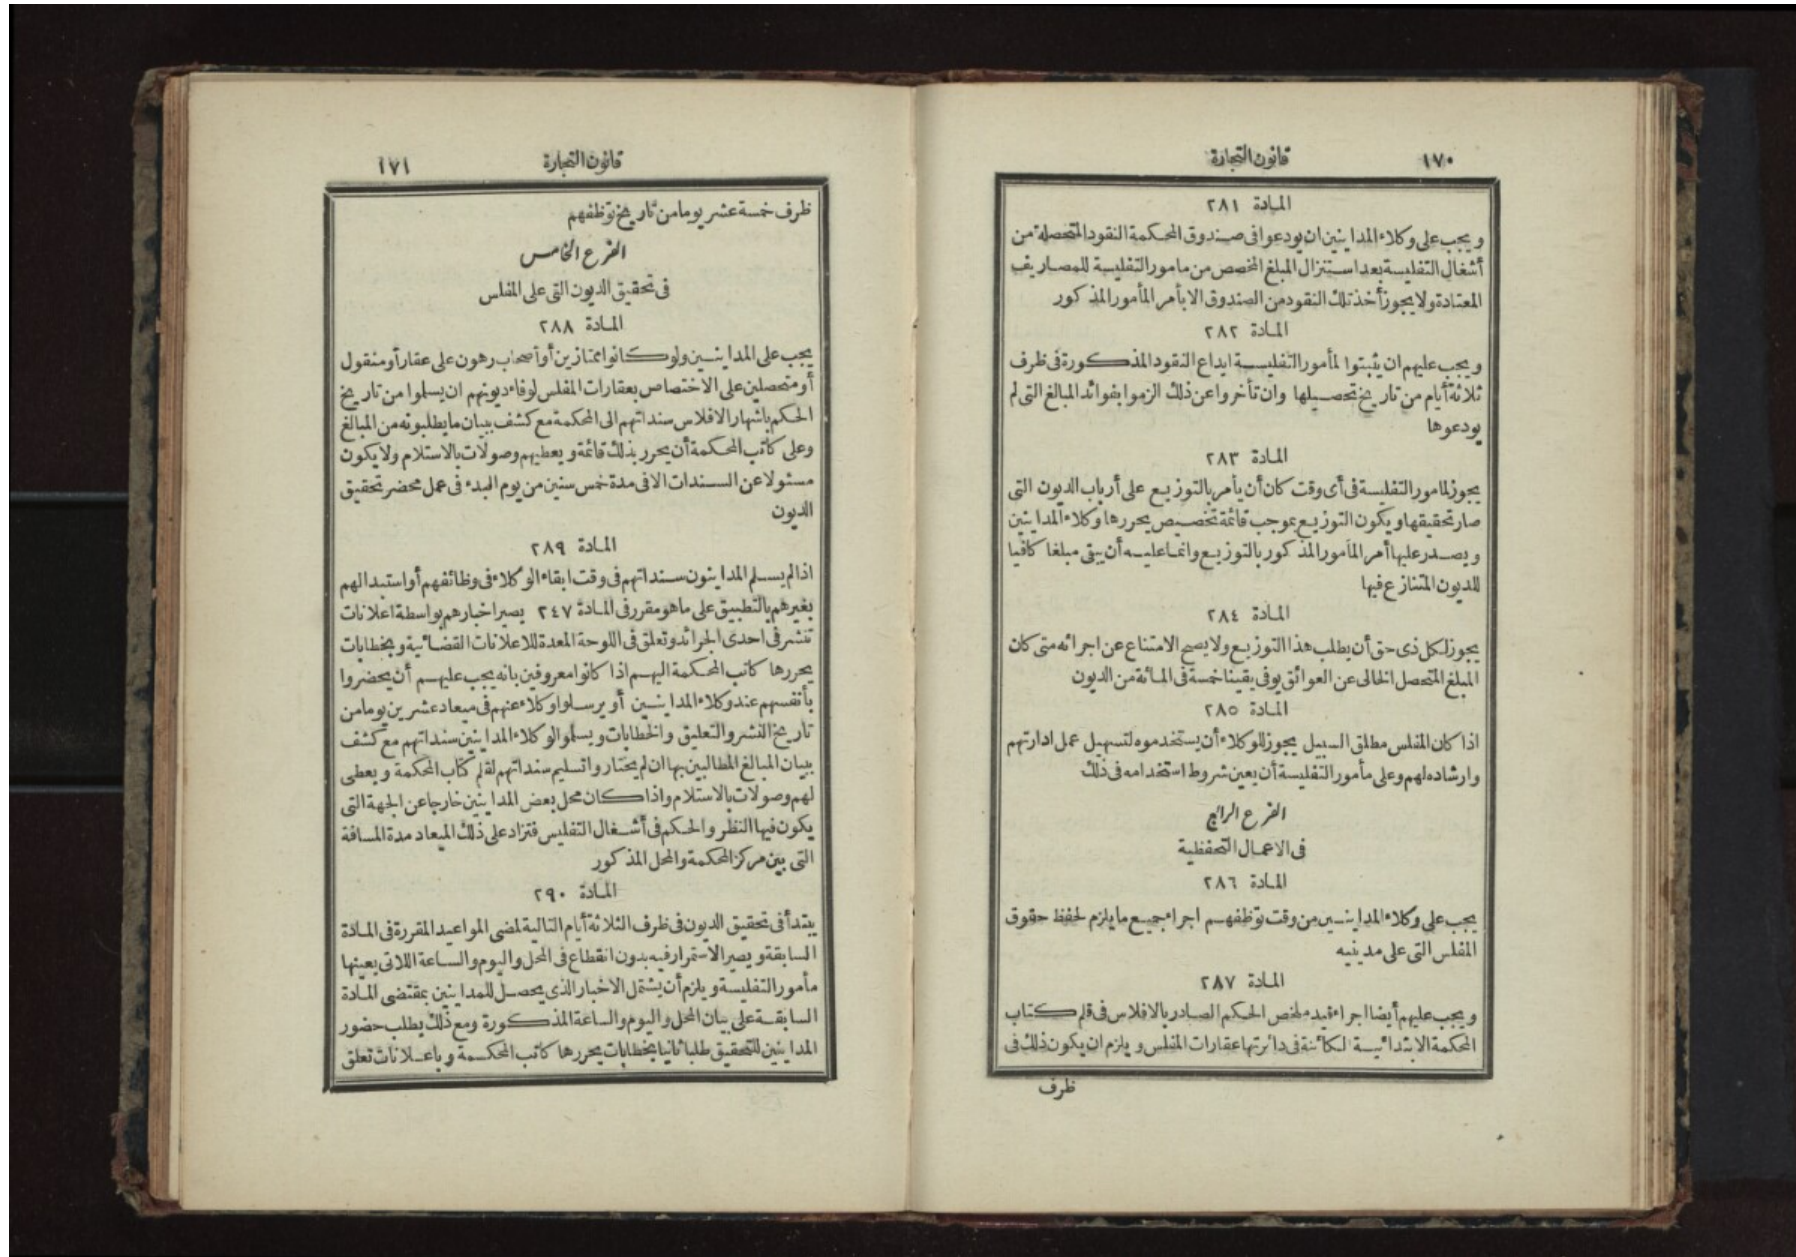 ١٧٠
قانون التجارة
المادة ٢٨١
ويجب على وكلاء المداينين ان يودعوا فى صندوق المحكمة النقود المتحصلة من
أشغال التفليسة بعد استنزال المبلغ المخصص من مامور التفليسة للمصاريف
المعتادة ولا يجوز أخذ تلك النقود من الصندوق الا بأمر المأمور المذكور
المادة ٢٨٢
ويجب عليهم ان يثبتوا لمأمور التفليسة ايداع النقود المذكورة فى ظرف
ثلاثة أيام من تاريخ تحصيلها وان تأخروا عن ذلك الزموا بفوائد المبالغ التى لم
يودعوها
المادة ٢٨٣
يجوز لمامور التفليسة فى أى وقت كان أن يأمر بالتوزيع على أرباب الديون التى
صار تحقيقها ويكون التوزيع بموجب قائمة تخصيص يحررها وكلاء المداينين
ويصدر عليها أمر المأمور المذكور بالتوزيع وانما عليه أن يبقى مبلغا كافيا
للديون المتنازع فيها
المادة ٢٨٤
يجوز لكل ذى حق أن يطلب هذا التوزيع ولا يصح الامتناع عن اجرائه متى كان
المبلغ المتحصل الخالى عن العوائق يوفى يقينا خمسة فى المائة من الديون
المادة ٢٨٥
اذا كان المفلس مطلق السبيل يجوز للوكلاء أن يستخدموه لتسهيل عمل ادارتهم
وارشاده لهم وعلى مأمور التفليسة أن يعين شروط استخدامه فى ذلك
الفرع الرابع
فى الاعمال التحفظية
المادة ٢٨٦
يجب على وكلاء المداينين من وقت توظفهم اجراء جميع ما يلزم لحفظ حقوق
المفلس التى على مدينيه
المادة ٢٨٧
ويجب عليهم أيضا اجراء قيد ملخص الحكم الصادر بالافلاس فى قلم كتاب
المحكمة الابتدائية الكائنة فى دائرتها عقارات المفلس ويلزم ان يكون ذلك فى
ظرف
قانون التجارة
١٧١
ظرف خمسة عشر يوما من تاريخ توظفهم
الفرع الخامس
فى تحقيق الديون التى على المفلس
المادة ٢٨٨
يجب على المداينين ولو كانوا ممتازين أو أصحاب رهون على عقار أو منقول
أو متحصلين على الاختصاص بعقارات المفلس لوفاء ديونهم ان يسلموا من تاريخ
الحكم باشهار الافلاس سنداتهم الى المحكمة مع كشف ببيان ما يطلبونه من المبالغ
وعلى كاتب المحكمة أن يحرر بذلك قائمة ويعطيهم وصولات بالاستلام ولا يكون
مسئولا عن السندات الا فى مدة خمس سنين من يوم البدء فى عمل محضر تحقيق
الديون
المادة ٢٨٩
اذا لم يسلم المداينون سنداتهم فى وقت ابقاء الوكلاء فى وظائفهم أو استبدالهم
بغيرهم بالتطبيق على ما هو مقرر فى المادة ٢٤٧ يصير اخبارهم بواسطة اعلانات
تنشر فى احدى الجرائد وتعلق فى اللوحة المعدة للاعلانات القضائية وبخطابات
يحررها كاتب المحكمة اليهم اذا كانوا معروفين بانه يجب عليهم أن يحضروا
بأنفسهم عند وكلاء المداينين أو يرسلوا وكلاء عنهم فى ميعاد عشرين يوما من
تاريخ النشر والتعليق والخطابات ويسلموا لوكلاء المداينين سنداتهم مع كشف
ببيان المبالغ المطالبين بها ان لم يختاروا تسليم سنداتهم لقلم كتاب المحكمة ويعطى
لهم وصولات بالاستلام واذا كان محل بعض المداينين خارجا عن الجهة التى
يكون فيها النظر والحكم فى أشغال التفليس فتزاد على ذلك الميعاد مدة المسافة
التى بين مركز المحكمة والمحل المذكور
المادة ٢٩٠
يبتدأ فى تحقيق الديون فى ظرف الثلاثة أيام التالية لمضى المواعيد المقررة فى المادة
السابقة ويصير الاستمرار فيه بدون انقطاع فى المحل واليوم والساعة اللاتى يعينها
مأمور التفليسة ويلزم أن يشتمل الاخبار الذى يحصل للمداينين بمقتضى المادة
السابقة على بيان المحل واليوم والساعة المذكورة ومع ذلك يطلب حضور
المداينين للتحقيق طلبا ثانيا بخطابات يحررها كاتب المحكمة وباعلانات تعلق